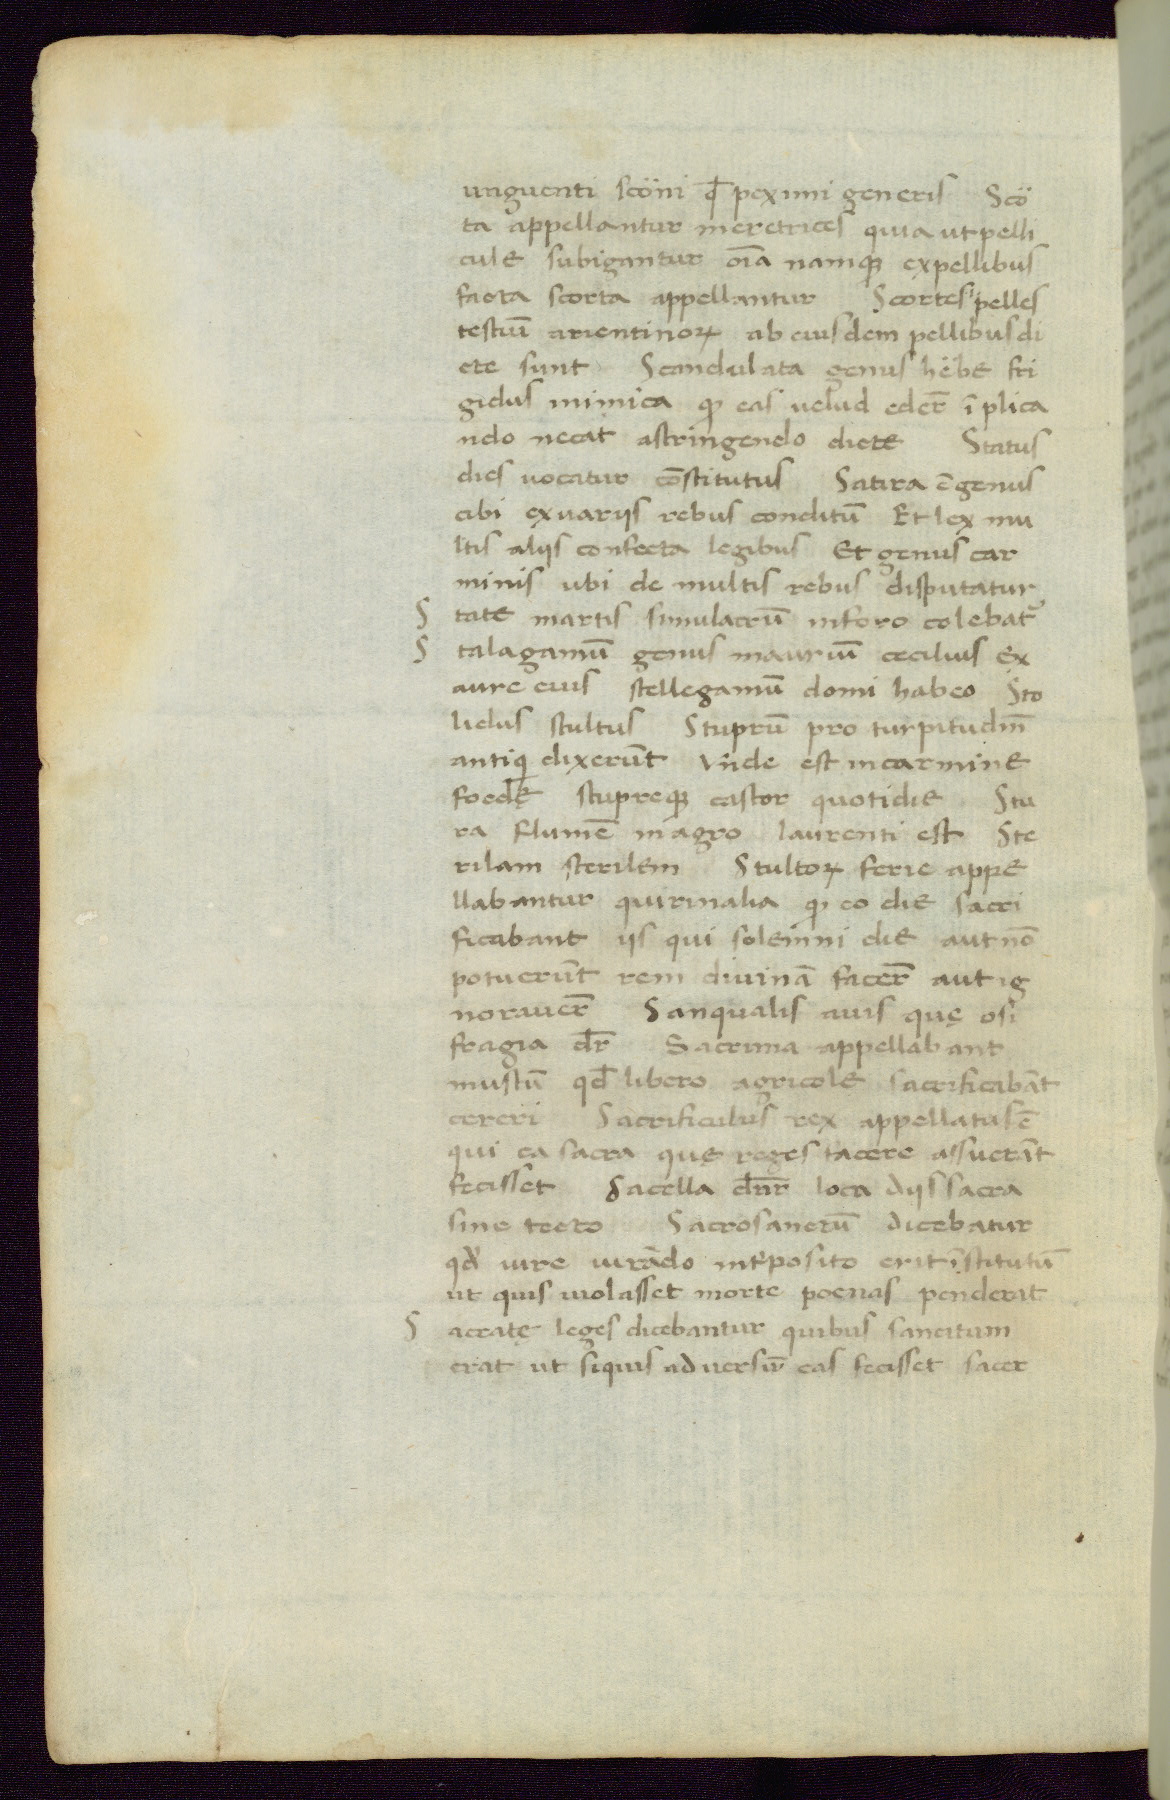 unguenti scöni qđ peximi generis Scö
ta appellantur meretrices quia ut pelli
cule subigantur oīa namqꝫ ex pellibus
facta scorta appellantur Scortes pelles
testiū arientinoꝝ ab eiusdem pellibus di
cte sunt Scandulata genus hēbe fri
gidus mimica qꝫ eas velud eder̄ īplica
ndo necat astringendo dicte Status
dies vocatur cōstitutus Satira ē genus
cibi ex variis rebus conditū Et lex mu
ltis aliis confecta legibus Et genus car
minis ubi de multis rebus disputatur
S tate martis simulacrū in foro colebat᷑
S talagamū genus inauriū cecilius Ex
aure eius stellegamū domi habeo Sto
lidus stultus Stuprū pro turpitudīn
antiqi dixerūt Vn̄de est in carmine
foede stupreqꝫ castor quotidie Stu
ra flumē in agro laurenti est Ste
rilam sterilem Stultoꝝ ferie appe
llabantur quirinalia qꝫ eo die sacri
ficabant iis qui solemni die aut nō
potuerūt rem divinā facer̄ aut ig
noraver̄ Sanqualis avis quę osi
fragia dr̄ Sacrima appellabant
mustū qđ libero agricole sacrificabāt
cereri Sacrificulus rex appellatus ē
qui ea sacra quę reges facere assuerāt
fecisset Sacella dn̄r loca diis sacra
sine tecto Sacrosanctū dicebatur
qđ iure iurādo int̄posito erit īstitutū
ut quis violasset morte poenas penderat
S acratę leges dicebantur quibus sancitum
erat ut siquis adversū eas fecisset sacer